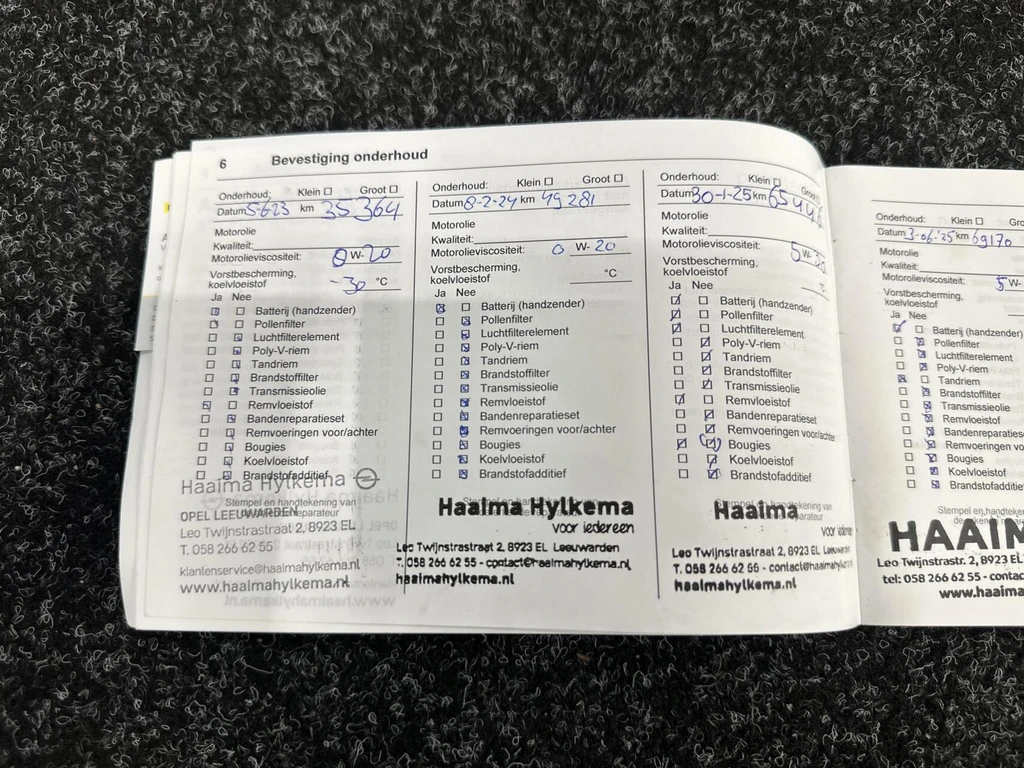 6 Bevestiging onderhoud
Onderhoud: Klein ☐ Groot ☐
Datum 5-6-23 km 35 364
Motorolie
Kwaliteit:
Motorolieviscositeit: 0 W- 20
Vorstbescherming,
koelvloeistof -30 °C
Ja Nee
Batterij (handzender)
Pollenfilter
Luchtfilterelement
Poly-V-riem
Tandriem
Brandstoffilter
Transmissieolie
Remvloeistof
Bandenreparatieset
Remvoeringen voor/achter
Bougies
Koelvloeistof
Brandstofadditief
Haaima Hylkema
Stempel en handtekening van
OPEL LEEUWARDEN
Leo Twijnstrastraat 2, 8923 EL
T. 058 266 62 55
klantenservice@haaimahylkema.nl
www.haaimahylkema.nl
Onderhoud: Klein ☐ Groot ☐
Datum 8-2-24 km 49 281
Motorolie
Kwaliteit:
Motorolieviscositeit: 0 W- 20
Vorstbescherming,
koelvloeistof °C
Ja Nee
Batterij (handzender)
Pollenfilter
Luchtfilterelement
Poly-V-riem
Tandriem
Brandstoffilter
Transmissieolie
Remvloeistof
Bandenreparatieset
Remvoeringen voor/achter
Bougies
Koelvloeistof
Brandstofadditief
Haaima Hylkema
voor iedereen
Leo Twijnstrastraat 2, 8923 EL Leeuwarden
T. 058 266 62 55 - contact@haaimahylkema.nl
haaimahylkema.nl
Onderhoud: Klein ☐ Groot
Datum 30-1-25 km
Motorolie
Kwaliteit:
Motorolieviscositeit: 5 W- 30
Vorstbescherming,
koelvloeistof °C
Ja Nee
Batterij (handzender)
Pollenfilter
Luchtfilterelement
Poly-V-riem
Tandriem
Brandstoffilter
Transmissieolie
Remvloeistof
Bandenreparatieset
Remvoeringen voor/achter
Bougies
Koelvloeistof
Brandstofadditief
Stempel en handtekening van
Haaima
voor
Leo Twijnstrastraat 2, 8923 EL
T. 058 266 62 55 -
haaimahylkema.nl
Onderhoud: Klein ☐ Groot
Datum 3-06-'25 km 69170
Motorolie
Kwaliteit:
Motorolieviscositeit: 5 W-
Vorstbescherming,
koelvloeistof
Ja Nee
Batterij (handzender)
Pollenfilter
Luchtfilterelement
Poly-V-riem
Tandriem
Brandstoffilter
Transmissieolie
Remvloeistof
Bandenreparatiese
Remvoeringen vo
Bougies
Koelvloeistof
Brandstofadditief
HAAIM
Leo Twijnstr. 2, 8923 E
tel: 058 266 62 55 - contac
www.haaima